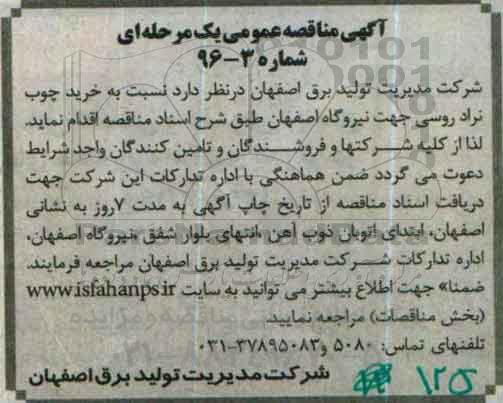 آگهی مناقصه عمومی یک مرحله‌ای
شماره ۳-۹۶
شرکت مدیریت تولید برق اصفهان درنظر دارد نسبت به خرید چوب
نراد روسی جهت نیروگاه اصفهان طبق شرح اسناد مناقصه اقدام نماید.
لذا از کلیه شرکتها و فروشندگان و تامین کنندگان واجد شرایط
دعوت می گردد ضمن هماهنگی با اداره تدارکات این شرکت جهت
دریافت اسناد مناقصه از تاریخ چاپ آگهی به مدت ۷روز به نشانی
اصفهان، ابتدای اتوبان ذوب آهن ،انتهای بلوار شفق ،نیروگاه اصفهان،
اداره تدارکات شرکت مدیریت تولید برق اصفهان مراجعه فرمایند.
ضمنا» جهت اطلاع بیشتر می توانید به سایت www.isfahanps.ir
(بخش مناقصات) مراجعه نمایید.
تلفنهای تماس: ۵۰۸۰ و۳۷۸۹۵۰۸۳-۰۳۱
شرکت مدیریت تولید برق اصفهان